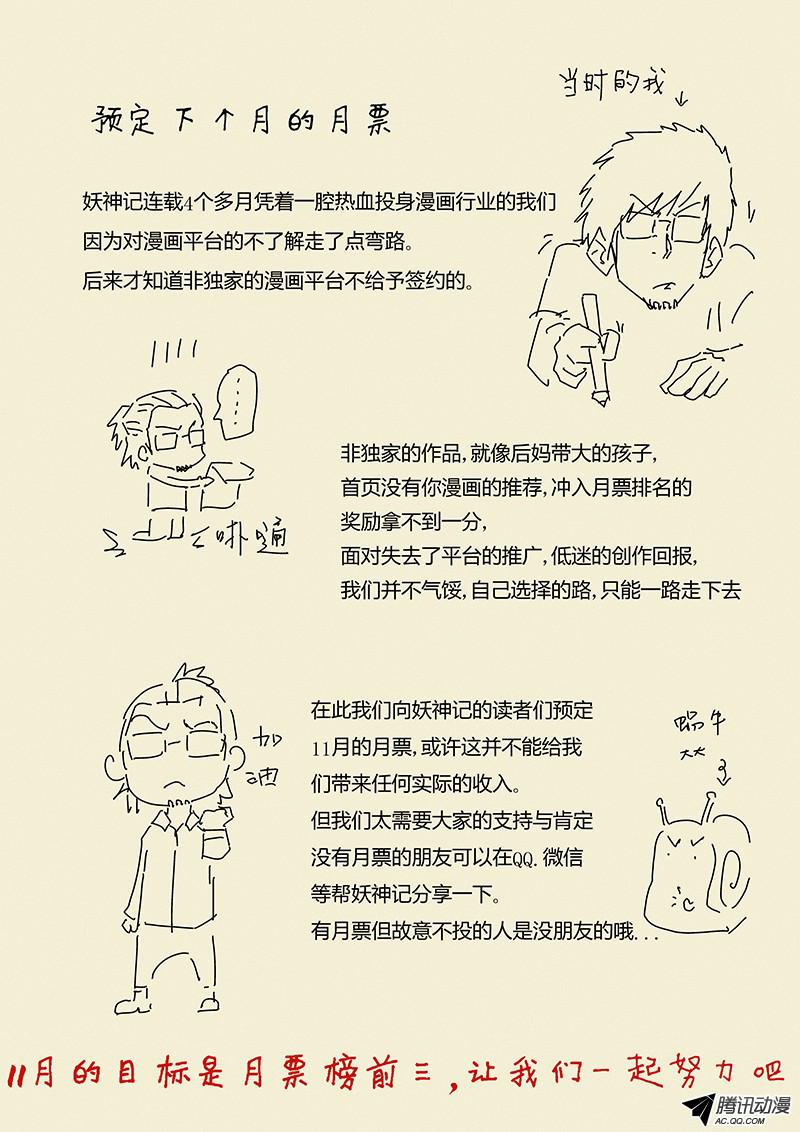 当时的我
预定下个月的月票
妖神记连载4个多月凭着一腔热血投身漫画行业的我们
因为对漫画平台的不了解走了点弯路。
后来才知道非独家的漫画平台不给予签约的。
......
噗通
非独家的作品,就像后妈带大的孩子,
首页没有你漫画的推荐,冲入月票排名的
奖励拿不到一分,
面对失去了平台的推广,低迷的创作回报,
我们并不气馁,自己选择的路,只能一路走下去
加
油
在此我们向妖神记的读者们预定
11月的月票,或许这并不能给我
们带来任何实际的收入。
但我们太需要大家的支持与肯定
没有月票的朋友可以在QQ.微信
等帮妖神记分享一下。
有月票但故意不投的人是没朋友的哦...
蜗牛
11月的目标是月票榜前三,让我们一起努力吧
腾讯动漫
AC.QQ.COM